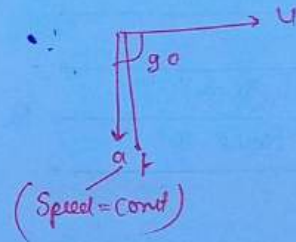 u
90
a f
(Speed = Const)